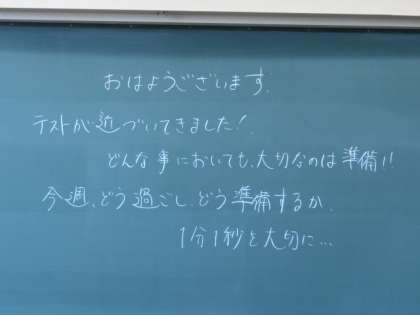 おはようございます.
テストが近づいてきました!
どんな事においても、大切なのは準備!!
今週、どう過ごし、どう準備するか.
1分1秒を大切に…